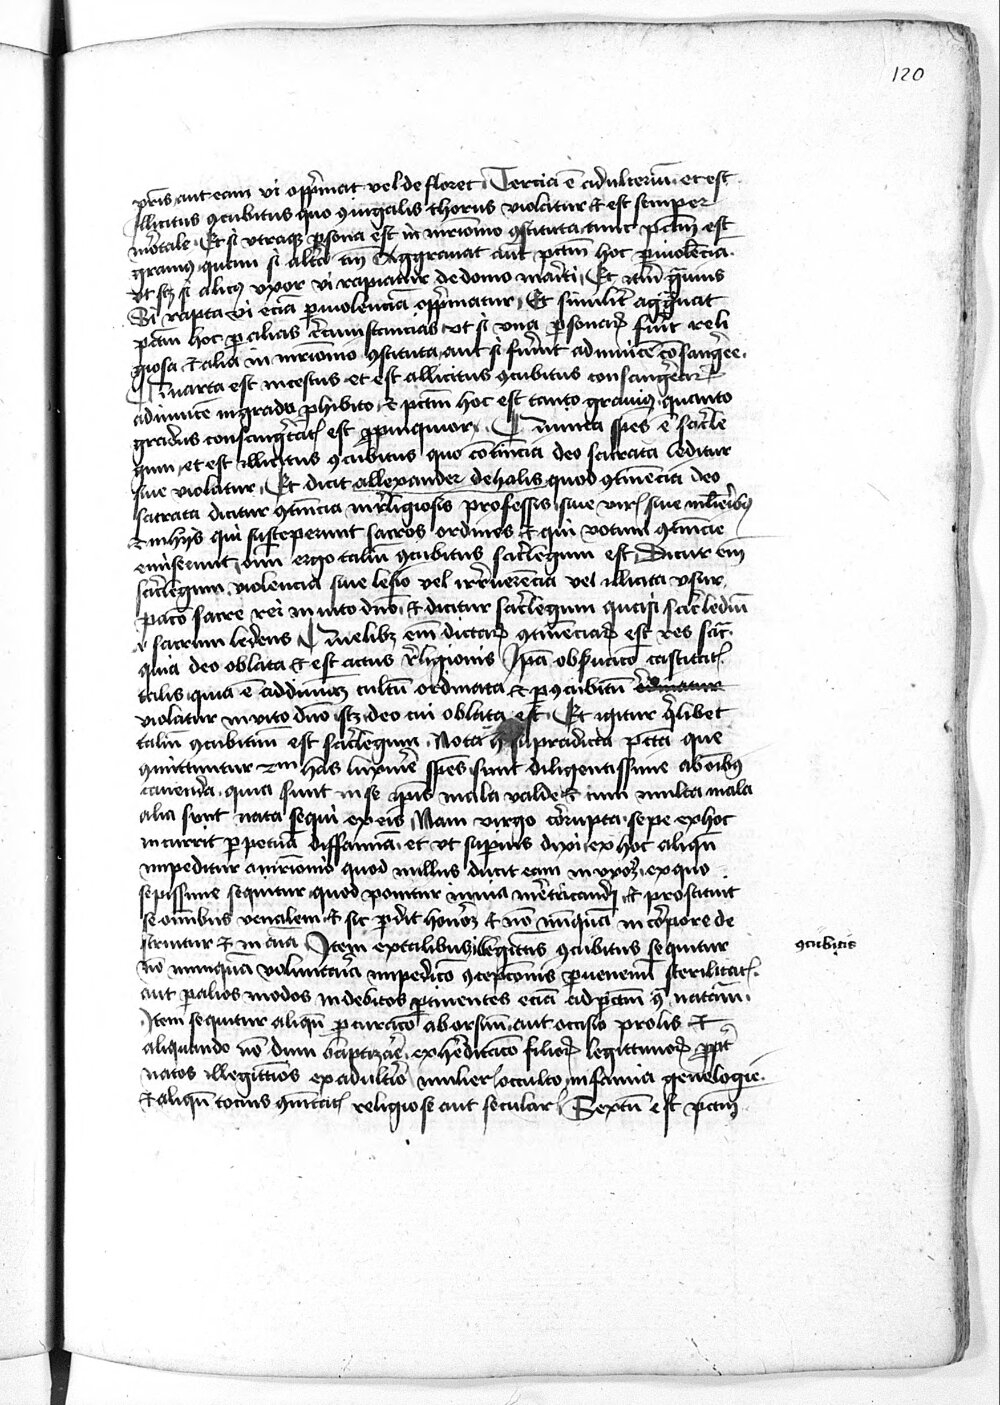 120
pris aut eam vi opprimat vel defloret Tercia e adulterium et est
illicitus concubitus quo coniugalis thorus violatur et est semper
mortale Et si utraque persona est in matrimonio constituta tunc peccatum est
gravius quam si altera tantum Aggravat autem peccatum hoc per violencia
ut scilicet si alicuius uxor vi rapiatur de domo mariti Et
Si rapta vi eciam per violenciam opprimatur Et similiter aggravat
peccatum hoc per alias circumstancias ut si una personarum fuerit reli
giosa et alia in matrimonio constituta aut si fuerint adinvicem consanguinee
Quarta est incestus et est illicitus concubitus consanguineorum
adinvicem in gradu prohibito et peccatum hoc est tanto gravius quanto
gradus consanguinitatis est propinquior Quinta species e sacrile
gium et est illicitus concubitus quo continencia deo sacrata leditur
sive violatur Et dicit allexander de halis quod continencia deo
sacrata dicitur continencia in religiosis professis sive viris sive mulieribus
et in hiis qui susceperunt sacros ordines et qui votum continencie
emiserunt omnis ergo talium concubitus sacrilegium est Dicitur enim
sacrilegium violencia sive lesio vel irreverencia vel illicita usur
pacio sacre rei invito domino et dicitur sacrilegium quasi sacriledium
sacrum ledens Quelibet enim dictarum continenciarum est res sacra
quia deo oblata et est actus religionis Ipsa observacio castitatis
talis quia e ad divinum cultum ordinata et per concubitum
violatur invito domino scilicet deo cui oblata est Et igitur quilibet
talium concubitum est sacrilegium Nota hec supradicta peccata que
committuntur in has luxurie species sunt diligentissime ab omnibus
cavenda quia sunt in se ipsis mala valde et cum multa mala
alia sunt nata sequi ex eis Nam virgo corrupta sepe ex hoc
incurrit perpetuam diffamiam et ut superius dixi ex hoc aliquando
impeditur a matrimonio quod nullus ducit eam in uxorem ex quo
sepissime sequitur quod ponitur in via meretricandi et prostituit
se omnibus venalem et sic perdit honorem et non nunquam in corpore de
struitur et in anima Item ex talibus illegittimis concubitus sequitur
non nunquam voluntaria impedicio concepcionis per venenum sterilitatis
aut per alios modos indebitos pertinentes eciam ad peccatum contra naturam
Item sequitur aliquando procuracio aborsum aut occisio prolis et
aliquando non dum baptizate exhereditacio filiorum legittimorum propter
natos illegittimos ex adulterio mulieris occulto infamia genelogie
et aliquando tocius communitatis religiose aut secularis Sextum est peccatum
concubitis